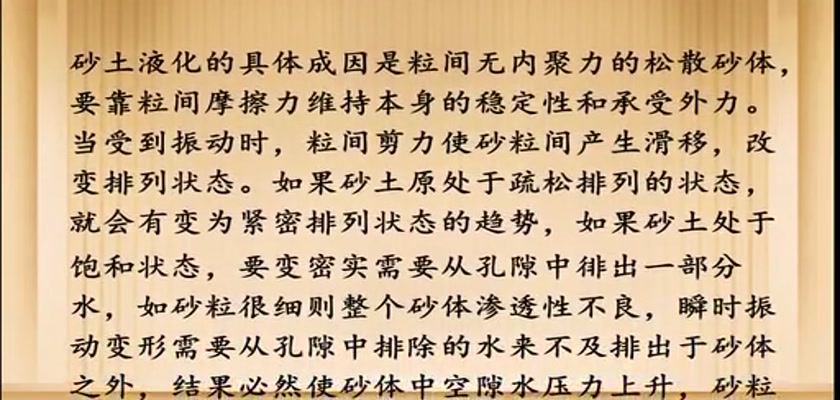 砂土液化的具体成因是粒间无内聚力的松散砂体，
要靠粒间摩擦力维持本身的稳定性和承受外力。
当受到振动时，粒间剪力使砂粒间产生滑移，改
变排列状态。如果砂土原处于疏松排列的状态，
就会有变为紧密排列状态的趋势，如果砂土处于
饱和状态，要变密实需要从孔隙中徘出一部分
水，如砂粒很细则整个砂体渗透性不良，瞬时振
动变形需要从孔隙中排除的水来不及排出于砂体
之外，结果必然使砂体中空隙水压力上升，砂粒